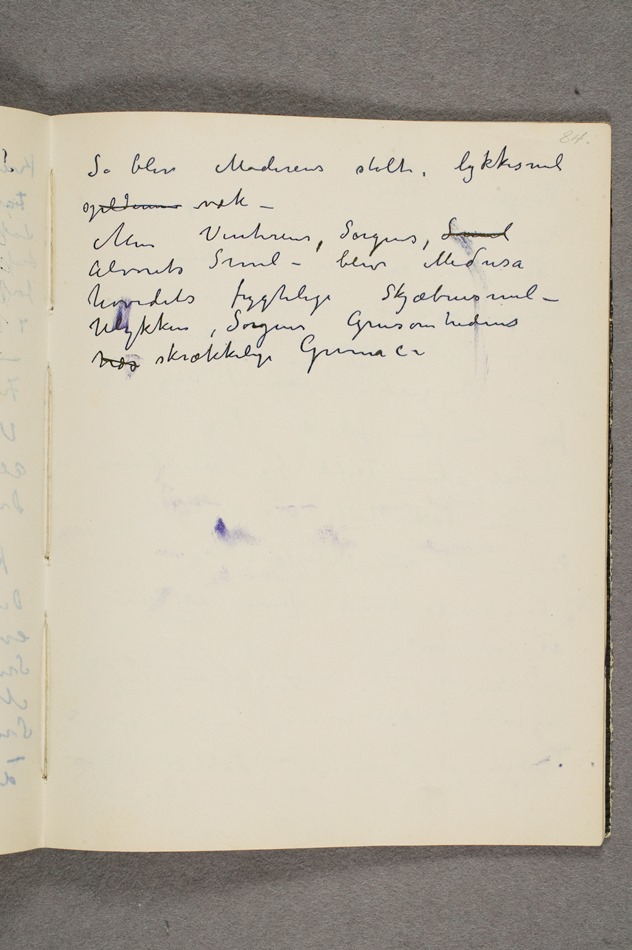 84.
So blev Moderens stolte, lykkesmil
væk –
Men Vinterens, Sorgens, Smil
Alvorets Smil – blev Medusa
hovedets frygtelige Skjæbnesmil –
Ulykkens, Sorgens Grusomhedens
skrækkelige Grimace